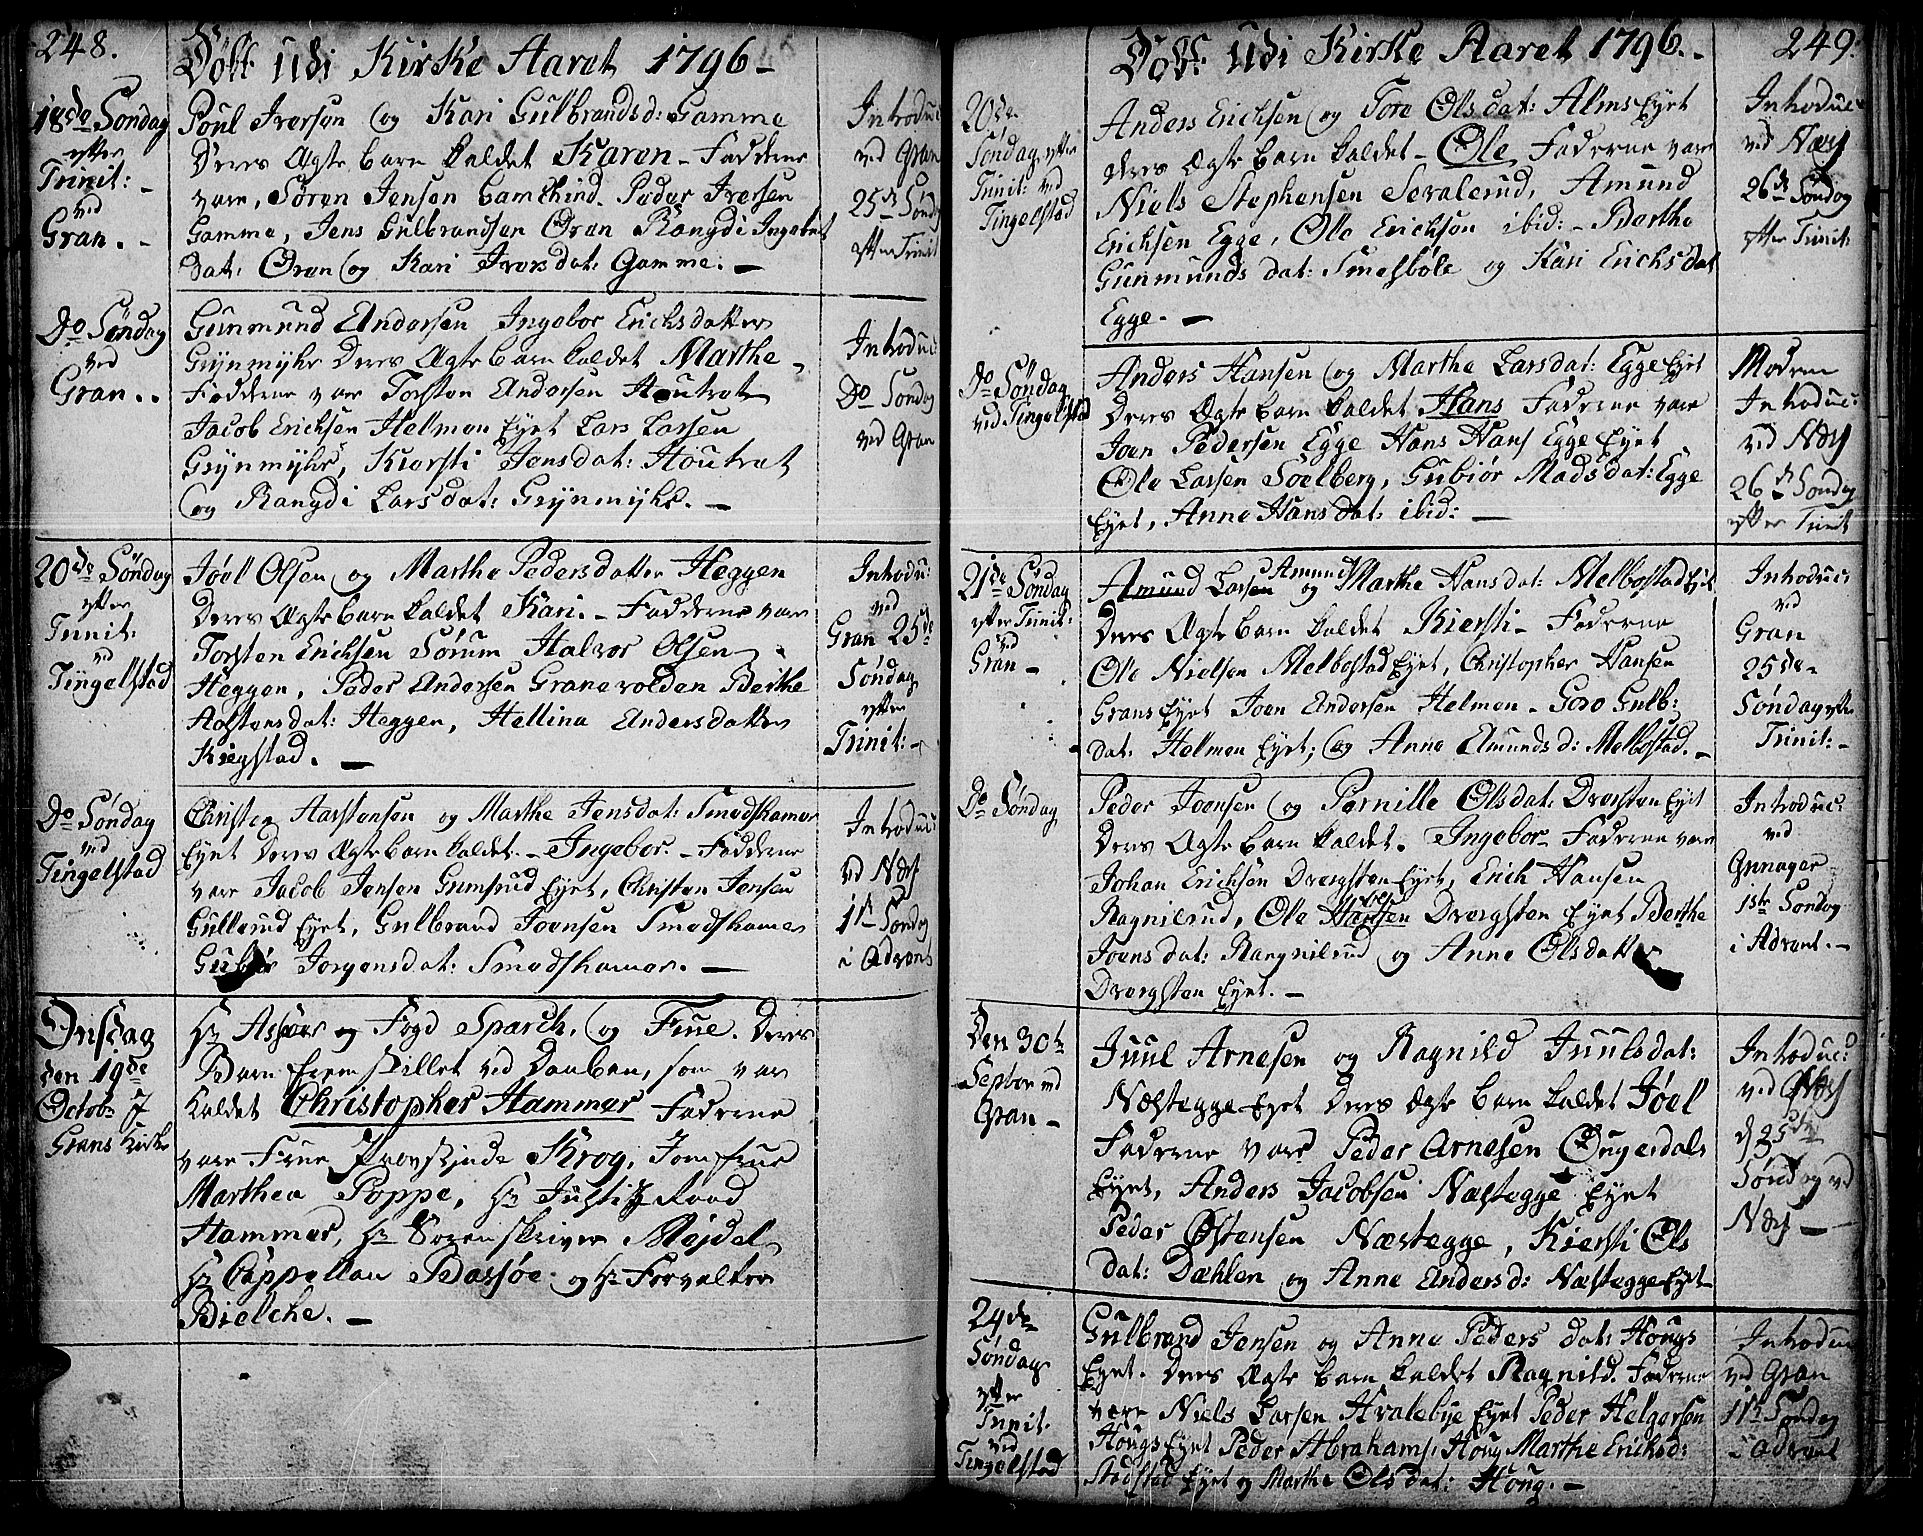 248.
Döbt udi Kirke Aaret 1796 -
18de Söndag
efter
Trinit: -
ved
Gran. -
Poul Iversøn og Kari Gulbrandsd: Gamme
Deres Ægte barn kaldet Karen - Fadderne
vare, Søren Jensen Peder Iversen
Gamme, Jens Gulbrandsen Oran Rangdi Ingebret
dat: Oran og Kari Iversdat: Gamme. -
Introduc:
ved Gran
25de Sönd:
efter Trinit
Do Söndag
ved
Gran..
Gunmund Andersen Ingebor Erichsdatter
Grijnmijhr Deres Ægte barn kaldet Marthe,
Fadderne vare Torsten Andersen Houtrat
Jacob Erichsen Helmen Eyet Lars Larsen
Grijnmijhr, Kiersti Jensdat: Houtrat
og Rangdi Larsdat: Grijnmijhr. -
Introduc:
Do Söndag
ved Gran
20de Söndag
efter
Trinit:
ved
Tingelstad
Joel Olsen og Marthe Pedersdatter Heggen
Deres Ægte barn kaldet Kari. - Fadderne vare
Torsten Erichsen Sørum Halvor Olsen
Heggen, Peder Andersen Granevolden Berthe
Aastensdat: Heggen, Hellina Andersdatter
Kiegstad. -
Introdu:
ved
Gran 25de
Söndag
efter
Trinit: -
Do Söndag
ved
Tingelstad
Christen Aastensen og Marthe Jensdat: Smedshamer
Eyet Deres Ægte barn kaldet. - Ingebor. - Fadderne
vare Jacob Jensen Grinsrud Eyet, Christen Jensen
Gullerud Eyet, Gulbrand Joensen Smedshamer
Gubiör Jorgensdat: Smedshamer. -
Introduc:
ved Næs
1te Söndag
i Advent
Onsdag
den 19de
Octobr i
Grans Kirke
Hr Assessor og Fogd Sparch, og Frue. Deres
Barn fremstillet ved Daaben, som var
kaldet Christopher Hammer Fadderne
vare Frue Provstinde Krog, Jomfrue
Marthea Poppe, Hr Justitz Raad
Hammer, Hr Sorenskriver Mejdel
Hr Cappellan Bassøe og Hr Forvalter
Bielche. -
Döbt udi Kirke Aaret 1796. -
249.
20de
Söndag efter
Trinit: ved
Tingelstad
Anders Erichsen og Tore Olsdat: Alms Eyet
deres Ægte barn kaldet - Ole Fadderne vare
Niels Stephensen Sevalerud, Amund
Erichsen Egge, Ole Erichsøn ibid: - Berthe
Gunmunds dat: Smesbøle og Kari Erichsdat
Egge. -
Introduc:
ved Næs
26de Söndag
efter Trinit:
Do Söndag
ved Tingelstad
Anders Hansen og Marthe Larsdat: Egge Eyet
Deres Ægte barn kaldet Hans Fadderne vare
Joen Pedersen Egge Hans Hans Egge Eyet
Ole Larsen Soelberg, Gubiør Madsdat: Egge
Eyet, Anne Hansdat: ibid: -
Moderen
Introduc:
ved Næs
26de Söndag
efter Trinit
21de Söndag
efter Trinit:
ved
Gran -
Amund
Amund Larsen og Marthe Hansdat: Melbostad Eyet
Deres Ægte barn kaldet Kiersti - Fadderne
Ole Nielsen Melbostad Eyet, Christopher Hansen
Grans Eyet Joen Andersen Helmen - Goro Gulb:
dat: Helmen Eyet; og Anne Amunds d: Melbostad. -
Introduc:
ved
Gran
25de
Söndag efter
Trinit: -
Do Söndag
Peder Joensen og Pernille Olsdat: Dvergsten Eyet
Deres Ægte barn kaldet. Ingebor - Fadderne vare
Johan Erichsen Dvergsten Eyet, Erich Hansen
Ragnilrud, Ole Dvergsten Eyet Berthe
Joens dat: Rangnilrud og Anne Olsdatter
Dvergsten Eyet. -
Introduc:
ved
Grinager
1ste Söndag
i Advent. -
Den 30te
Septbr ved
Gran -
Juul Arnesen og Ragnild Juulsdat:
Næstegge Eyet Deres Ægte barn kaldet Joel
Fadderne vare Peder Arnesen Dugerdals
Eyet, Anders Jacobsen Næstegge Eyet
Peder Østensen Næstegge, Kiersti Ols
dat: Dæhlen og Anne Andersd: Næstegge Eyet
Introduc:
ved Næs
d 25de
Söndag ved
Næs -
24de
Söndag
efter
Trinit.
ved
Tingelstad
Gulbrand Jensen og Anne Peders dat: Hougs
Eyet. Deres Ægte barn kaldet Ragnild. Fadderne
vare Niels Larsen Hvalebye Eyet Peder Helgersøn
Hougs Eyet Peder Abrahams: Houg Marthe Erichsd:
Stadstad Eyet og Marthe Olsdat: Houg. -
Introduc
ved Gran
1te Söndag
i Advent